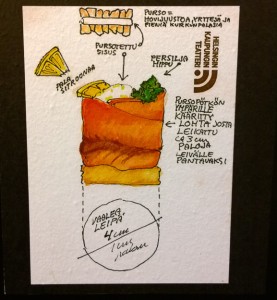 PURSO =
HOVIJUUSTOA, YRTTEJÄ JA
PIENIÄ KURKKUPALOJA
PURSOTETTU
SISUS
PERSILJA
TIPPU
PALA
SITRUUNAA
HELSINGIN
KAUPUNGIN
TEATTERI
PURSOPÖTKÖN
YMPÄRILLE
KÄÄRITTY
LOHTA JOSTA
LEIKATTU
CA 3 CM
PALOJA
LEIVÄLLE
PANTAVAKSI
VAALEA
LEIPÄ
4 cm
1 cm